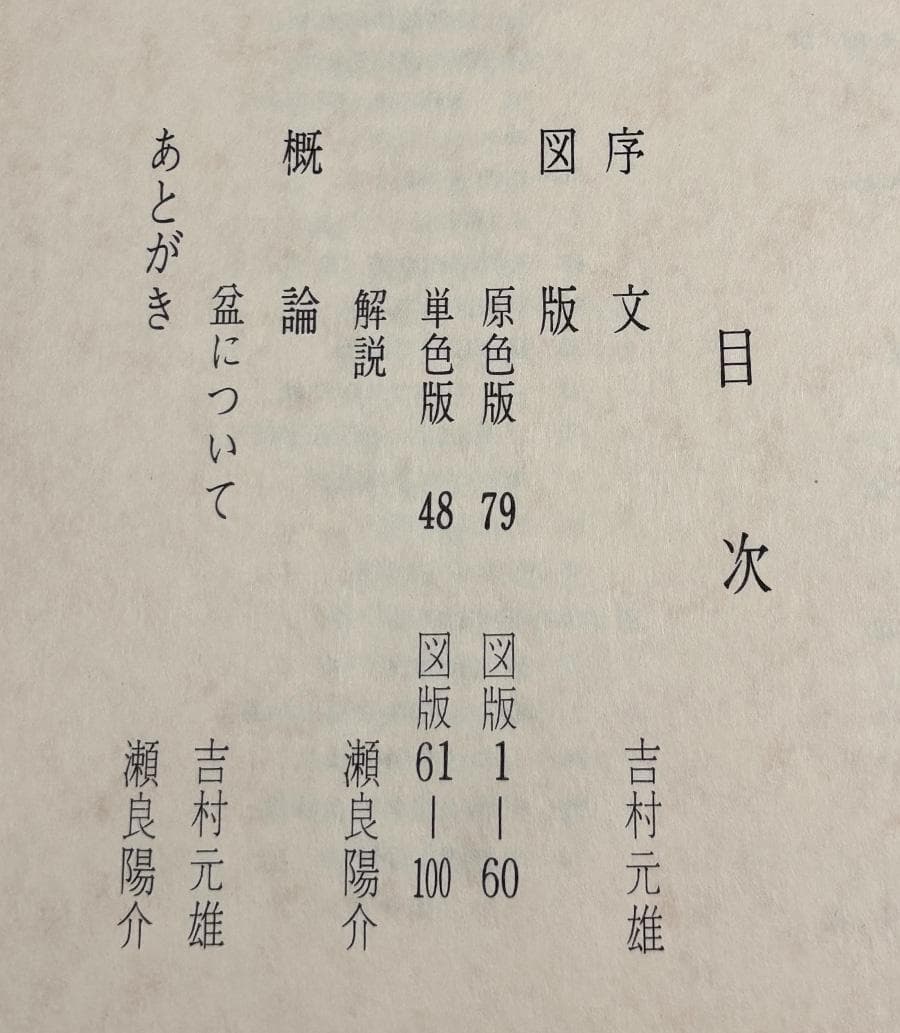 目次
序文 吉村元雄
図版
原色版 79 図版 1―60
単色版 48 図版 61―100
解説 瀬良陽介
概論
盆について 吉村元雄
あとがき 瀬良陽介